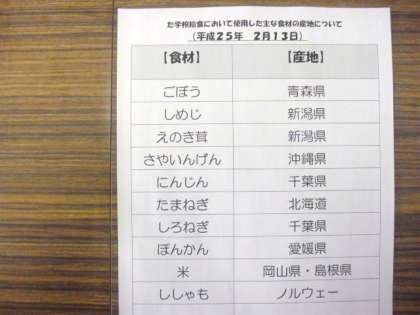 た学校給食において使用した主な食材の産地について
（平成２５年　２月１３日）
【食材】　【産地】
ごぼう　青森県
しめじ　新潟県
えのき茸　新潟県
さやいんげん　沖縄県
にんじん　千葉県
たまねぎ　北海道
しろねぎ　千葉県
ぽんかん　愛媛県
米　岡山県・島根県
ししゃも　ノルウェー